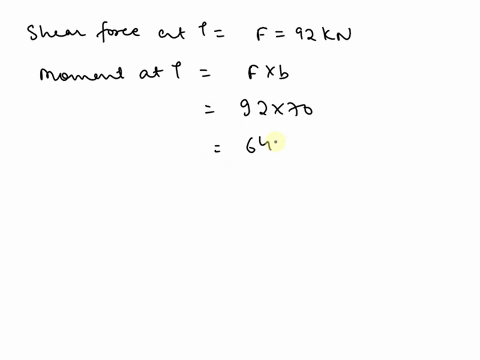 Shear force at P = F = 92 KN
moment at P = F × b
= 92 × 70
= 64